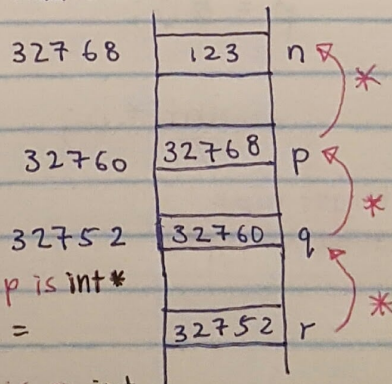 32768 123 n
*
32760 32768 p
*
32752 32760 q
p is int*
*
= 32752 r